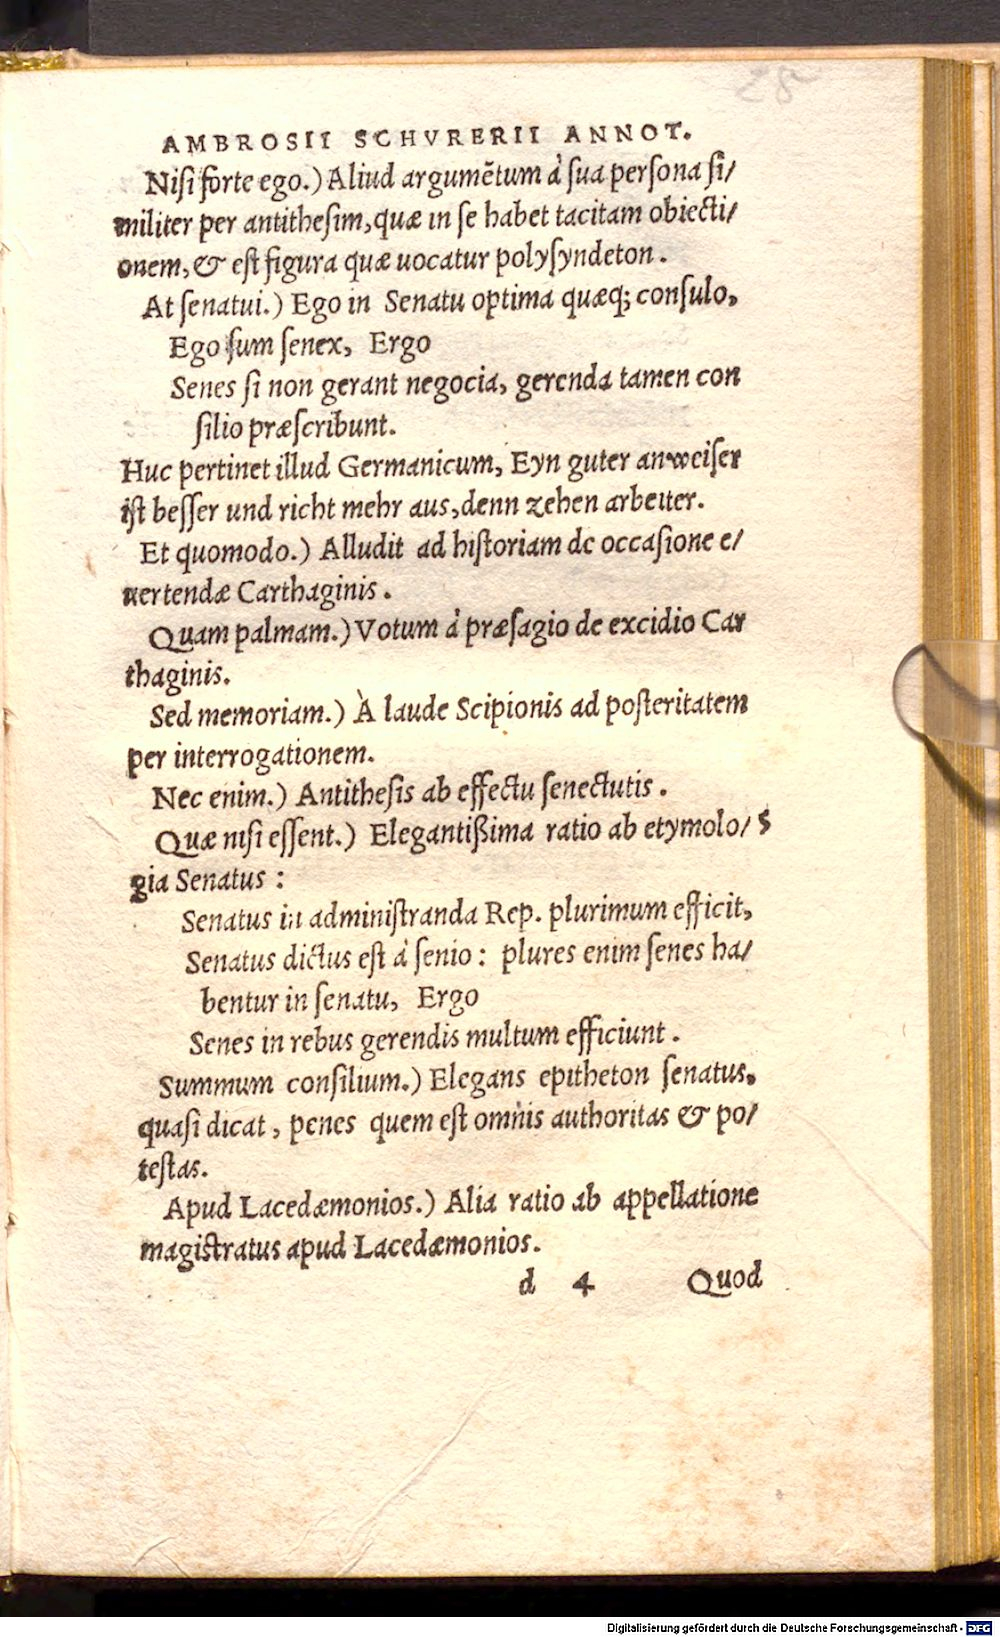 28
AMBROSII SCHVRERII ANNOT.
Nisi forte ego.) Aliud argumẽtum à sua persona si/
militer per antithesim, quæ in se habet tacitam obiecti/
onem, & est figura quæ uocatur polysyndeton.
At senatui.) Ego in Senatu optima quæq; consulo,
Ego sum senex, Ergo
Senes si non gerant negocia, gerenda tamen con
silio præscribunt.
Huc pertinet illud Germanicum, Eyn guter anweiser
ist besser und richt mehr aus, denn zehen arbeiter.
Et quomodo.) Alludit ad historiam de occasione e/
uertendæ Carthaginis.
Quam palmam.) Votum à præsagio de excidio Car
thaginis.
Sed memoriam.) À laude Scipionis ad posteritatem
per interrogationem.
Nec enim.) Antithesis ab effectu senectutis.
Quæ nisi essent.) Elegantißima ratio ab etymolo/ 5
gia Senatus :
Senatus in administranda Rep. plurimum efficit,
Senatus dictus est à senio : plures enim senes ha/
bentur in senatu, Ergo
Senes in rebus gerendis multum efficiunt.
Summum consilium.) Elegans epitheton senatus,
quasi dicat, penes quem est omnis authoritas & po/
testas.
Apud Lacedæmonios.) Alia ratio ab appellatione
magistratus apud Lacedæmonios.
d 4 Quod
Digitalisierung gefördert durch die Deutsche Forschungsgemeinschaft - DFG